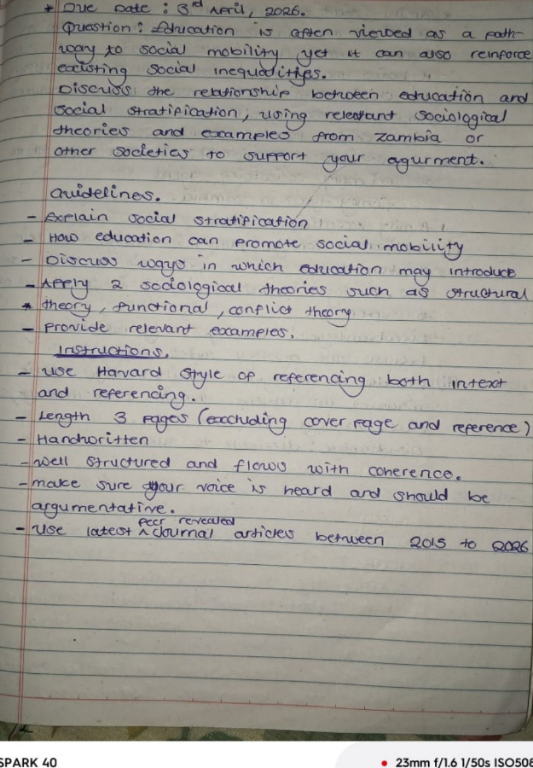 * Due Date : 3rd April, 2026.
Question : Education is often viewed as a path-
way to social mobility yet it can also reinforce
existing social inequalities.
Discuss the relationship between education and
social stratification, using relevant sociological
theories and examples from Zambia or
other societies to support your agurment.
Guidelines.
- Explain social stratification
- How education can promote social mobility
- Discuss ways in which education may introduce
- Apply 2 sociological theories such as structural
* theory, functional, conflict theory
- provide relevant examples.
Instructions.
- Use Havard style of referencing both intext
and referencing.
- Length 3 pages (excluding cover page and reference)
- Handwritten
- well structured and flows with coherence.
- make sure your voice is heard and should be
argumentative.
- Use latest ^ peer revealed Journal articles between 2015 to 2026
SPARK 40
23mm f/1.6 1/50s ISO508